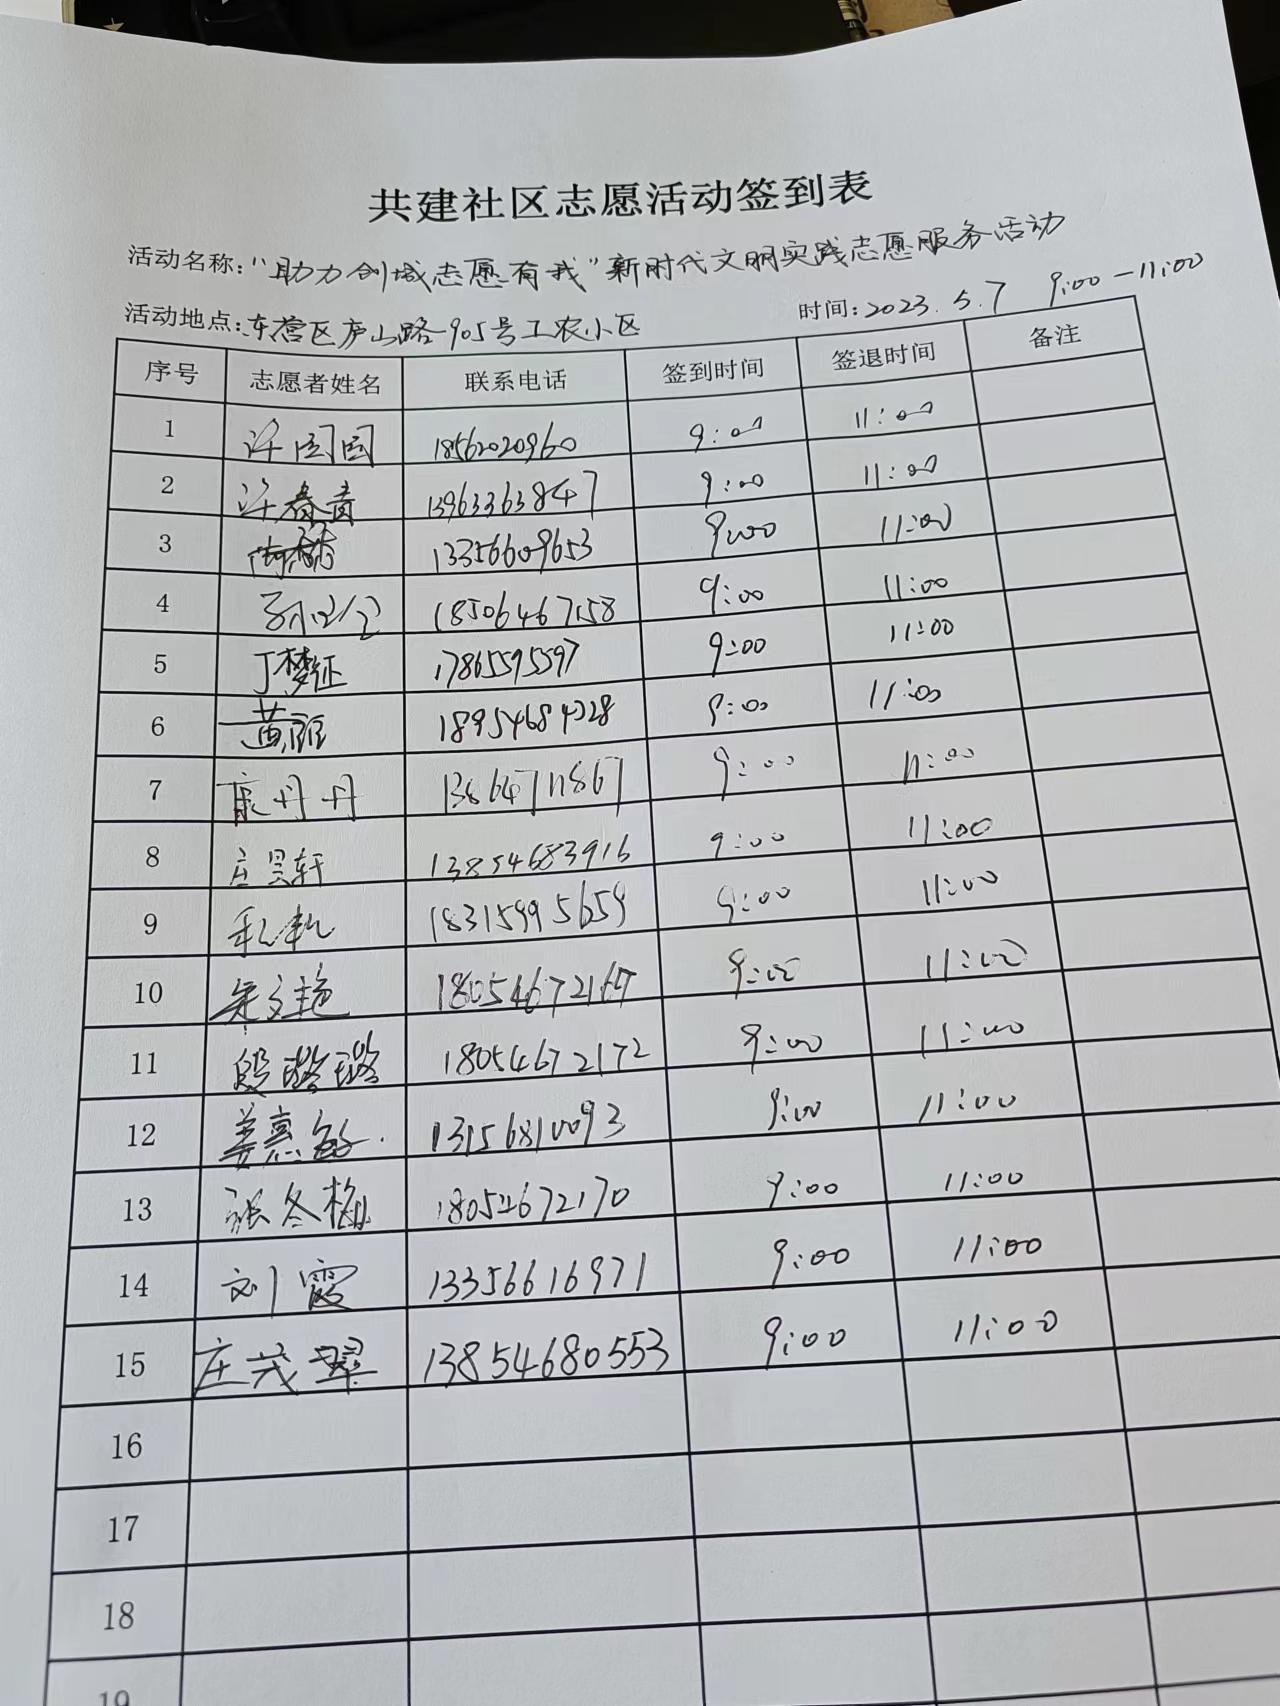 共建社区志愿活动签到表
活动名称："助力创城志愿有我"新时代文明实践志愿服务活动
活动地点：东营区庐山路905号工农小区 时间：2023.5.7 9:00-11:00
序号 志愿者姓名 联系电话 签到时间 签退时间 备注
1 许园园 18562020960 9:00 11:00
2 许春青 13963363847 9:00 11:00
3 13356609653 9:00 11:00
4 18506467158 9:00 11:00
5 丁梦征 17865595597 9:00 11:00
6 黄丽 18954684328 9:00 11:00
7 康丹丹 13864711867 9:00 11:00
8 庄昊轩 13854683916 9:00 11:00
9 18315995659 9:00 11:00
10 朱文艳 9:00 11:00
11 段璐璐 18054672172 9:00 11:00
12 姜惠敏 13156810093 9:00 11:00
13 张冬梅 18054672170 9:00 11:00
14 刘霞 13356616971 9:00 11:00
15 庄茂翠 13854680553 9:00 11:00
16
17
18
19